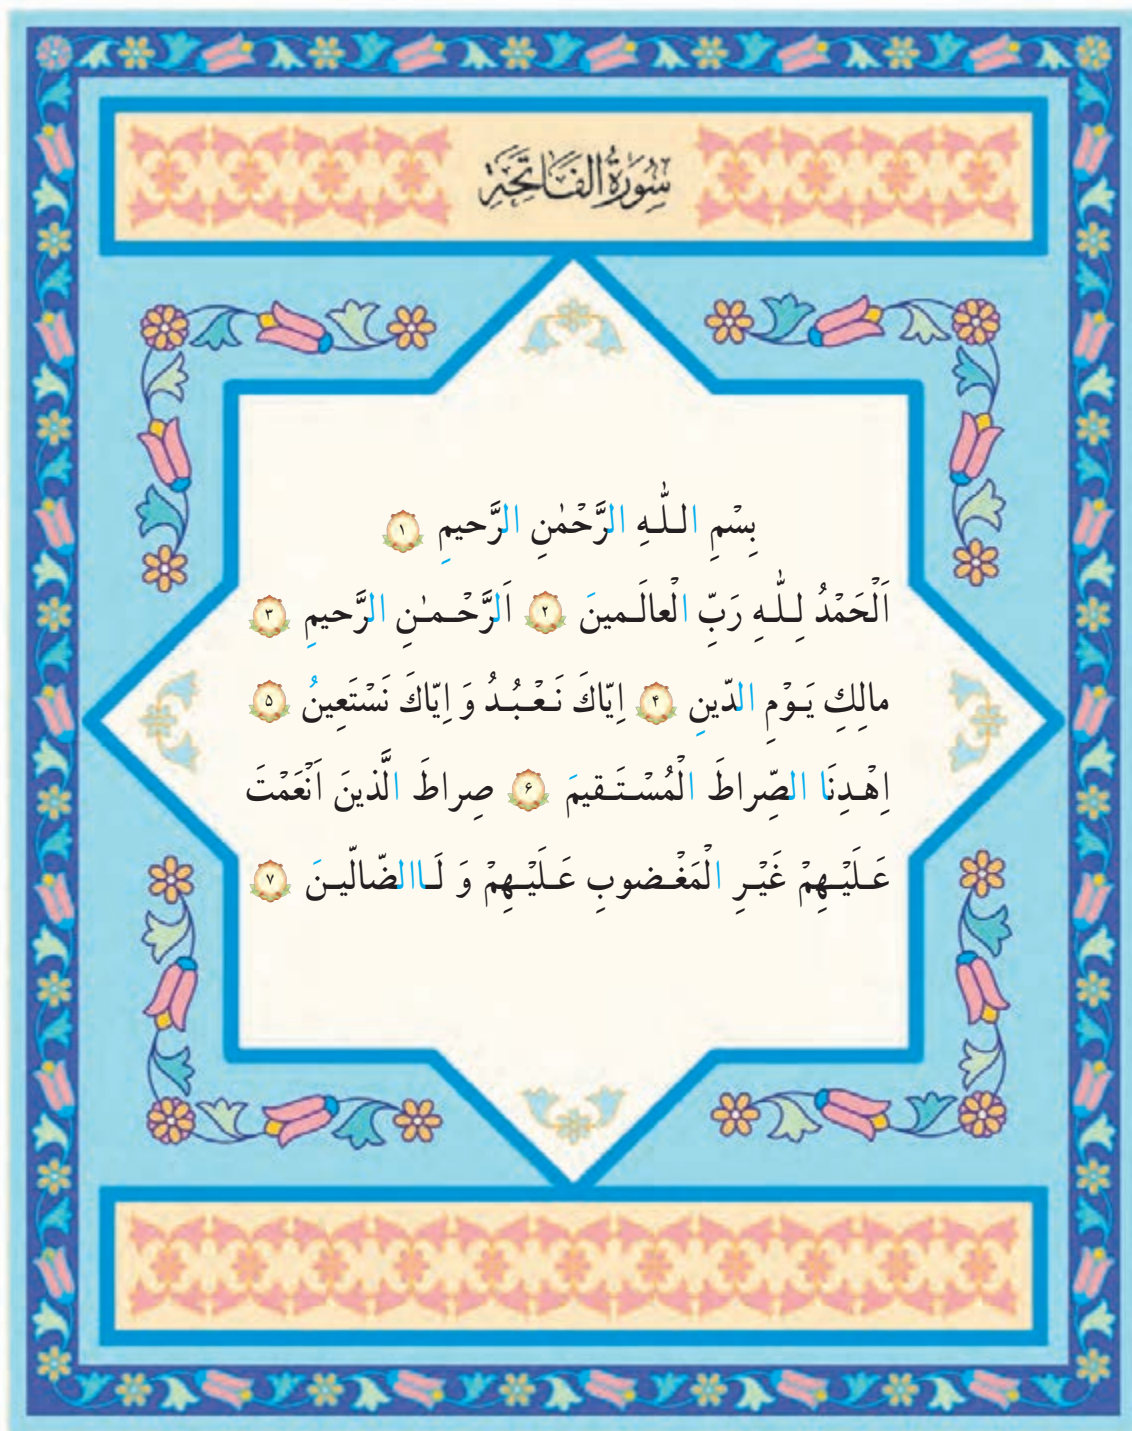 سُورَةُ الفَاتِحَةِ
بِسْمِ اللّٰهِ الرَّحْمٰنِ الرَّحیمِ ۱
اَلْحَمْدُ لِلّٰهِ رَبِّ الْعالَمینَ ۲ اَلرَّحْمٰنِ الرَّحیمِ ۳
مالِكِ يَوْمِ الدّینِ ۴ اِیّاكَ نَعْبُدُ وَ اِیّاكَ نَسْتَعینُ ۵
اِهْدِنَا الصِّراطَ الْمُسْتَقیمَ ۶ صِراطَ الَّذینَ اَنْعَمْتَ
عَلَيْهِمْ غَيْرِ الْمَغْضوبِ عَلَيْهِمْ وَ لَاالضّالّینَ ۷